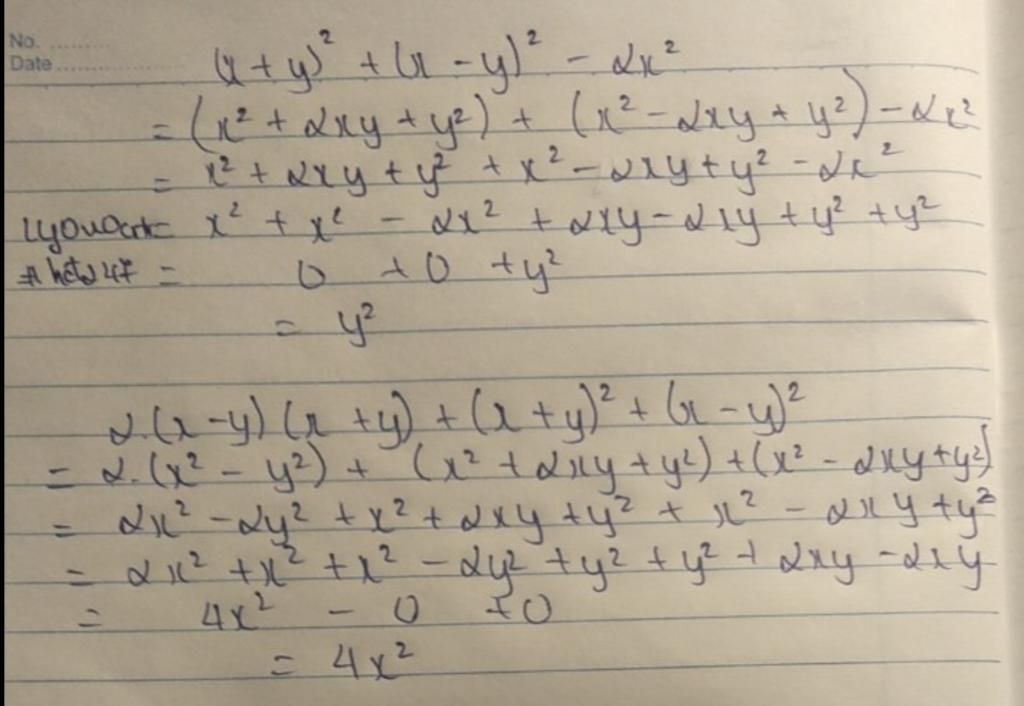 No. ........
Date ................
(x + y)² + (x - y)² - 2x²
= (x² + 2xy + y²) + (x² - 2xy + y²) - 2x²
= x² + 2xy + y² + x² - 2xy + y² - 2x²
= x² + x² - 2x² + 2xy - 2xy + y² + y²
= 0 + 0 + y²
= y²
2.(x - y) (x + y) + (x + y)² + (x - y)²
= 2.(x² - y²) + (x² + 2xy + y²) + (x² - 2xy + y²)
= 2x² - 2y² + x² + 2xy + y² + x² - 2xy + y²
= 2x² + x² + x² - 2y² + y² + y² + 2xy - 2xy
= 4x² - 0 + 0
= 4x²